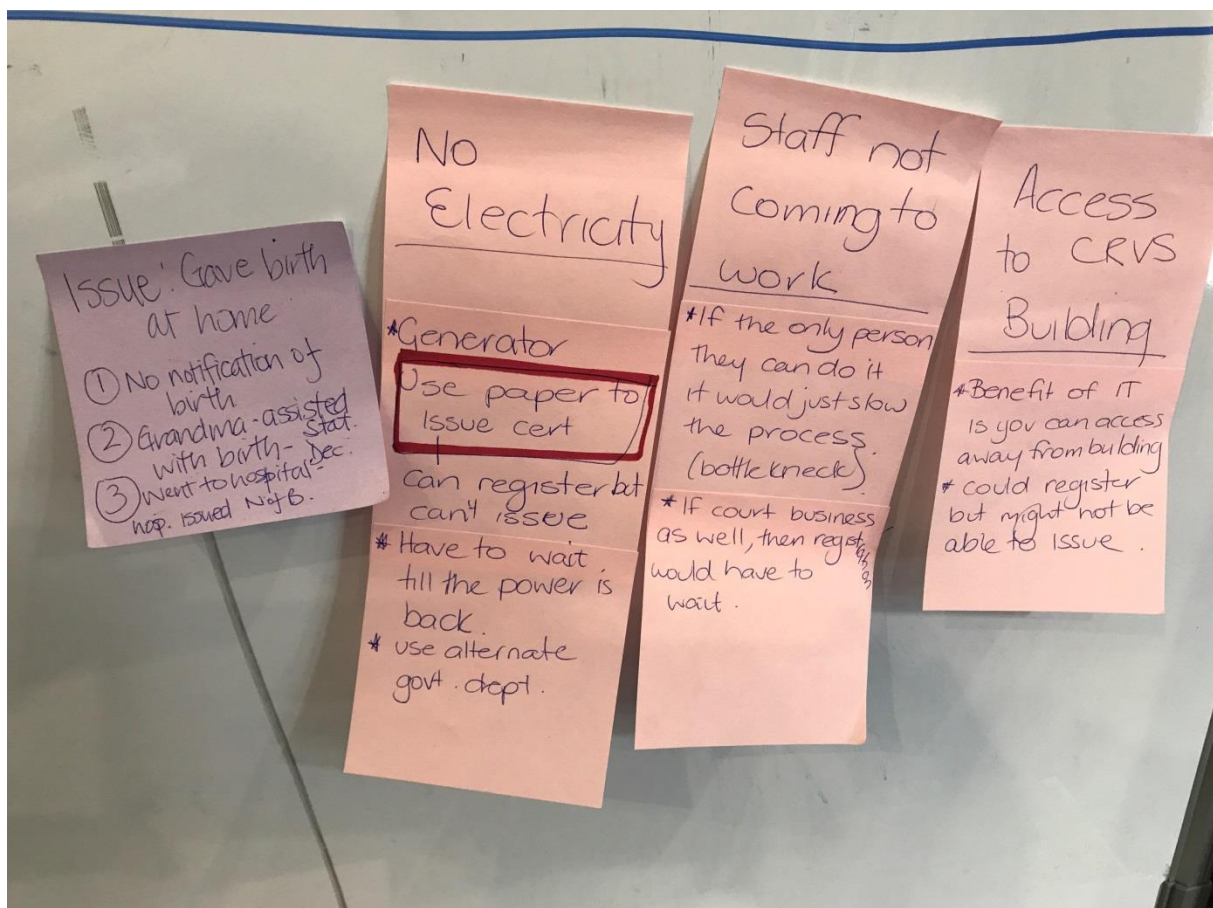 Issue: Gave birth
at home
① No notification of
birth
② Grandma-assisted
with birth- Stat.
Dec.
③ Went to hospital-
hosp. issued N of B.
No
Electricity
*Generator
Use paper to
Issue cert
Can register but
can't issue
* Have to wait
till the power is
back.
* use alternate
govt. dept.
Staff not
Coming to
work
*If the only person
they can do it
it would just slow
the process.
(bottlekneck)
* If court business
as well, then registration
would have to
wait.
Access
to CRVS
Building
*Benefit of IT
is you can access
away from building
* could register
but might not be
able to issue.